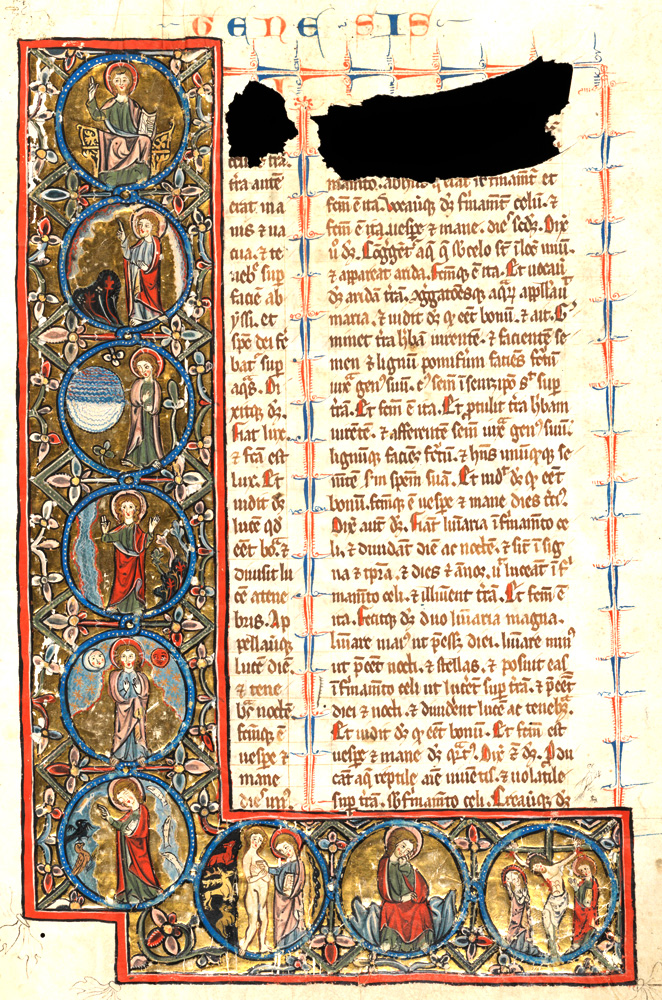 GENESIS
trā.
tra autē
erat ina
nis ⁊ ua
cua. ⁊ te
neb̄ sup
faciē ab
yssi. et
sp̄c dei fe
bat᷑ sup
aq̄s. Di
xitq; d̄s.
Fiat lux.
⁊ fc̄a est
lux. Et
uidit d̄s
lucē qd̄
eēt bo᷑a. ⁊
diuisit lu
cē a tene
bris. Ap
pellauq;
lucē diē
⁊ tene
bᵃs noctē.
fcm̄q; ē
uesp̄e ⁊
mane
dieˢ unꝰ.
firmamēt et
fcm̄ ē ita. Vocauitq; d̄s firmamt̄ celū. ⁊
fcm̄ ē ita. uesp̄e ⁊ mane. dieˢ sedꝰ. Dix̄
ů d̄s. Cōgregēt᷑ aq̄ q̄ sb̄ celo st̄ ī locū unū.
⁊ appareat arida. fcm̄q; ē ita. Et uocauᷓ
d̄s aridā t᷑rā. ꝯgg̃atōesq; aquaꝝ appllauᷓ
maria. ⁊ uidit d̄s q̊ eēt bonū. ⁊ ait. G᷑
minet t᷑ra hb̄ā uirentē. ⁊ facientē se
men ⁊ lignū pomiferum faciēs fructū
iux̄ genꝰ suū. cꝰ sem̄ ī semetip̄o sᵗ sup
t᷑rā. Et fcm̄ ē ita. Et ꝓtulit t᷑ra hb̄am
uirētē. ⁊ afferentē sem̄ iux̄ᵃ genꝰ suū.
lignūq; faciēˢ fructū. ⁊ hn̄s unūq̄q; se
mētē sm̄ spēm suā. Et uidᵗ d̄s q̊ eēt
bonū. fcm̄q; ē uesp̄e ⁊ mane dies t᷑ciꝰ.
Dix̄ aut̄ d̄s. Fiāt luīaria ī firmam̄to ce
li. ⁊ diuidāt diē ac noctē. ⁊ sīt ī sig
na ⁊ tp̄ra. ⁊ dies ⁊ ānos. ut luceāt ī fᵃ
mam̄to celi. ⁊ illuīent t᷑rā. Et fcm̄ ē
ita. Fecitq; d̄s duo luīaria magna.
luīare maiꝰ ut p̄eēt diei. luīare minꝰ
ut p̄eēt nocti. ⁊ stellas. ⁊ posuit eas
ī firmam̄to celi ut lucēt sup t᷑rā. ⁊ p̄eēt
diei ⁊ nocti. ⁊ diuident lucē ac tenebᵃs.
Et uidit d̄s q̊ eēt bonū. Et fcm̄ est
uesp̄e ⁊ mane d̄s qᵃrtꝰ. Dix̄ ē d̄s. Pdu
cāt aq̄ reptile aīe uiuentis. ⁊ uolatile
sup t᷑rā. sb̄ firmam̄to celi. Creauitq; d̄s